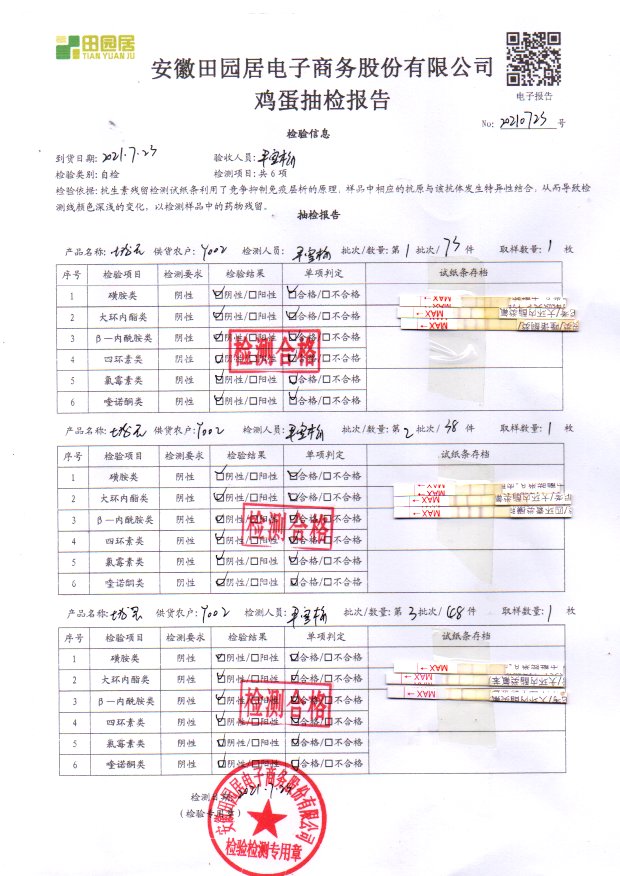 田园居
TIAN YUAN JU
安徽田园居电子商务股份有限公司
鸡蛋抽检报告
电子报告
No: 20210723 号
检验信息
到货日期: 2021.7.23 验收人员:
检验类别: 自检 检测项目: 共 6 项
检验依据: 抗生素残留检测试纸条利用了竞争抑制免疫层析的原理, 样品中相应的抗原与该抗体发生特异性结合, 从而导致检
测线颜色深浅的变化, 以检测样品中的药物残留。
抽检报告
产品名称: 供货农户: Y002 检测人员: 批次/数量: 第 1 批次/ 75 件 取样数量: 1 枚
序号 检验项目 检测要求 检验结果 单项判定 试纸条存档
1 磺胺类 阴性 ☑阴性/□阳性 ☑合格/□不合格
2 大环内酯类 阴性 ☑阴性/□阳性 ☑合格/□不合格
3 β—内酰胺类 阴性 ☑阴性/□阳性 ☑合格/□不合格
4 四环素类 阴性 ☑阴性/□阳性 ☑合格/□不合格
5 氯霉素类 阴性 ☑阴性/□阳性 ☑合格/□不合格
6 喹诺酮类 阴性 ☑阴性/□阳性 ☑合格/□不合格
MAX
MAX
MAX
检测合格
产品名称: 供货农户: Y002 检测人员: 批次/数量: 第 2 批次/ 48 件 取样数量: 1 枚
序号 检验项目 检测要求 检验结果 单项判定 试纸条存档
1 磺胺类 阴性 ☑阴性/□阳性 ☑合格/□不合格
2 大环内酯类 阴性 ☑阴性/□阳性 ☑合格/□不合格
3 β—内酰胺类 阴性 ☑阴性/□阳性 ☑合格/□不合格
4 四环素类 阴性 ☑阴性/□阳性 ☑合格/□不合格
5 氯霉素类 阴性 ☑阴性/□阳性 ☑合格/□不合格
6 喹诺酮类 阴性 ☑阴性/□阳性 ☑合格/□不合格
MAX
MAX
MAX
检测合格
产品名称: 供货农户: Y002 检测人员: 批次/数量: 第 3 批次/ 48 件 取样数量: 1 枚
序号 检验项目 检测要求 检验结果 单项判定 试纸条存档
1 磺胺类 阴性 ☑阴性/□阳性 ☑合格/□不合格
2 大环内酯类 阴性 ☑阴性/□阳性 ☑合格/□不合格
3 β—内酰胺类 阴性 ☑阴性/□阳性 ☑合格/□不合格
4 四环素类 阴性 ☑阴性/□阳性 ☑合格/□不合格
5 氯霉素类 阴性 ☑阴性/□阳性 ☑合格/□不合格
6 喹诺酮类 阴性 ☑阴性/□阳性 ☑合格/□不合格
MAX
MAX
MAX
检测合格
检测日期: 2021.7.24
(检验专用章)
安徽田园居电子商务股份有限公司
检验检测专用章